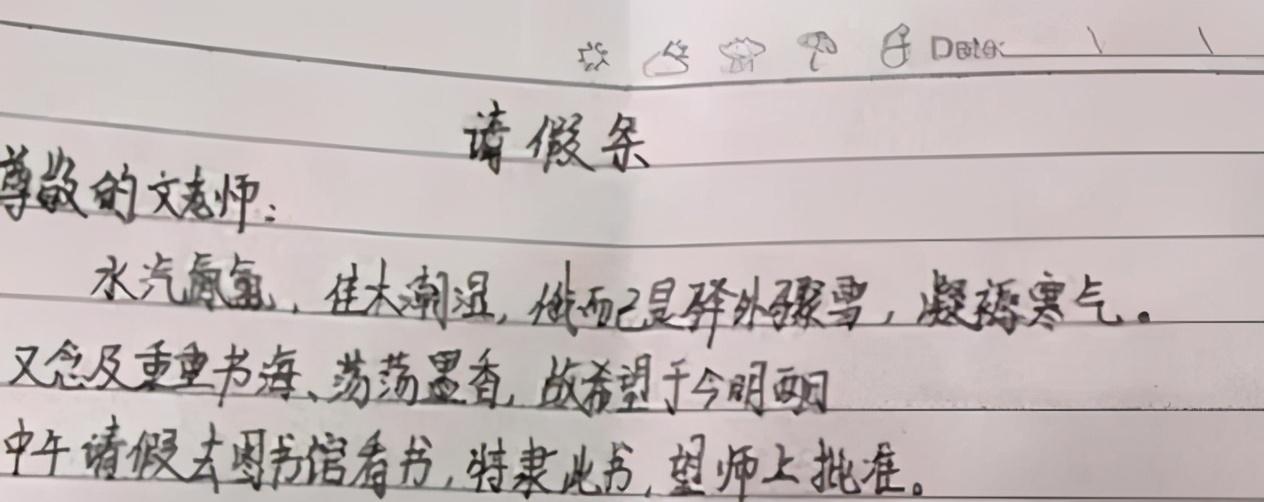 Date:
请假条
尊敬的文老师:
水汽氤氲,佳木潮湿,俄而已是驿外骤雪,凝稀寒气。
又念及重重书海、荡荡墨香,故希望于今明两日
中午请假去图书馆看书,特隶此书,望师上批准。